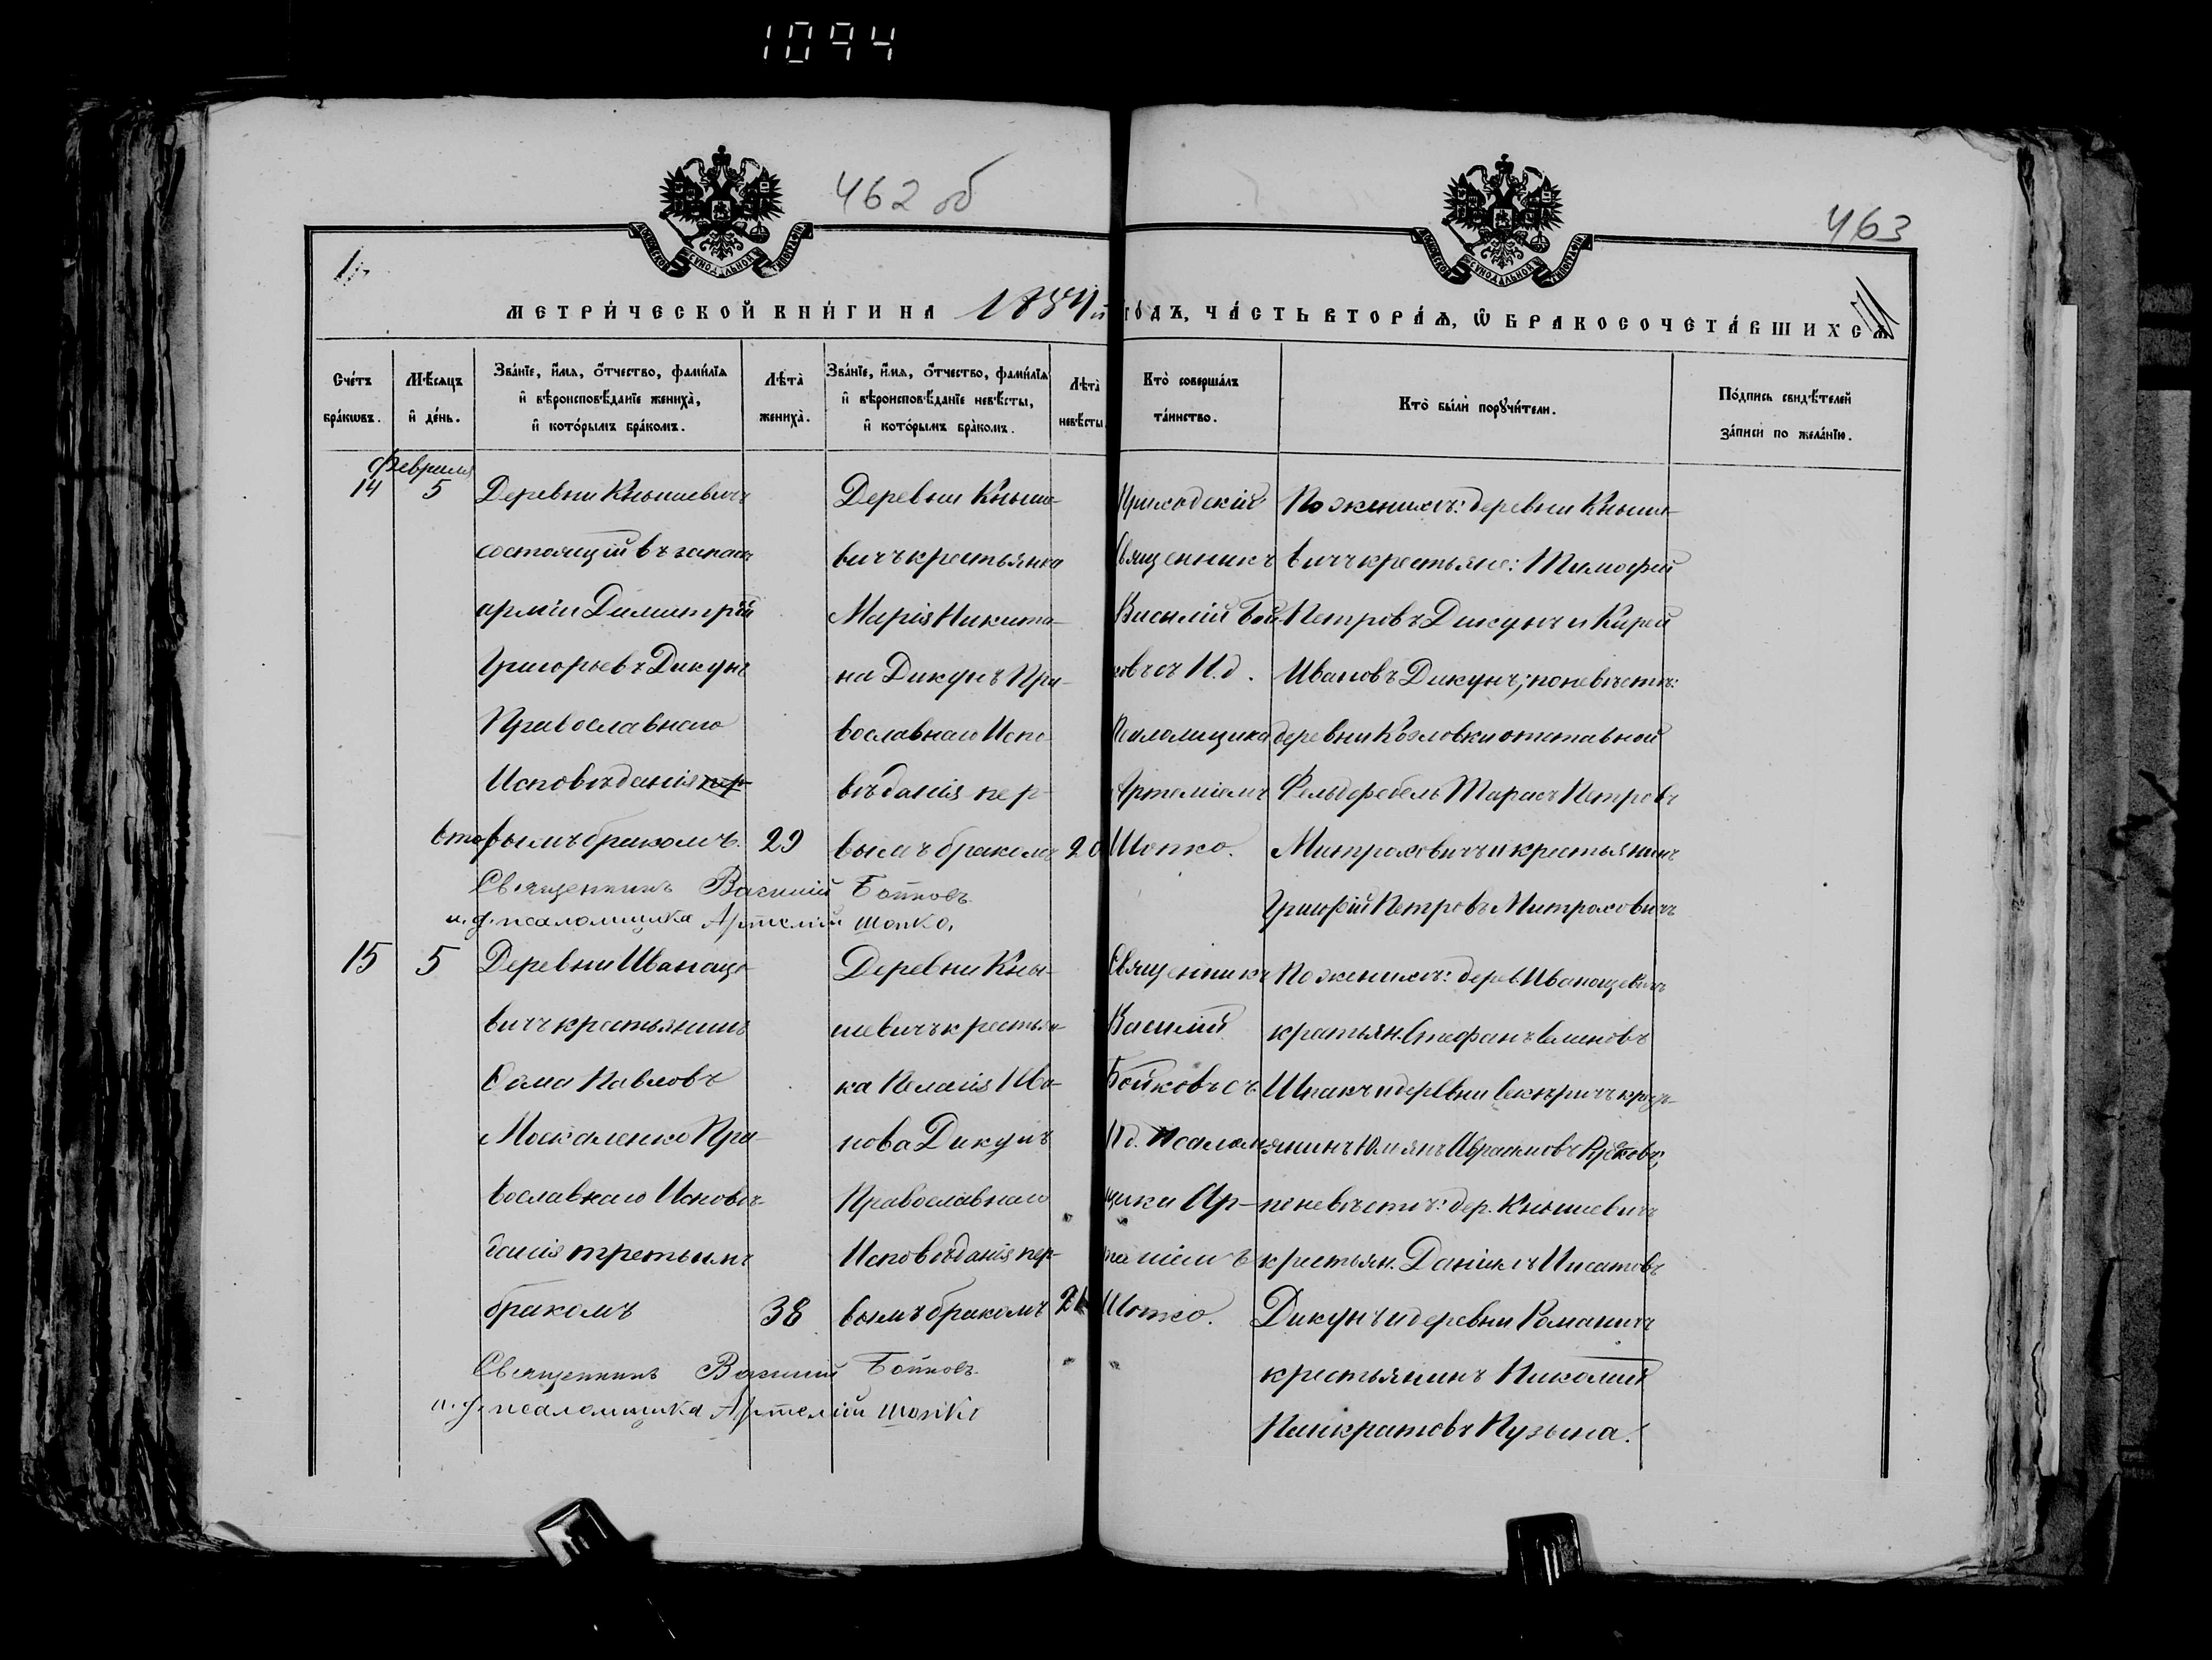 1094
462 об
463
МЕТРИ́ЧЕСКОЙ КНИ́ГИ НА 1884й ГО́ДЪ, ЧА́СТЬ ВТОРА́Ѧ, Ѿ БРАКОСОЧЕТА́ВШИХСѦ
Сче́тъ бра́кѡвъ.
Мѣ́сяцъ и҆ де́нь.
Зва́нїе, и҆́мѧ, ѻ҆́тчество, фами́лїѧ и҆ вѣроисповѣ́данїе жениха̀, и҆ кото́рымъ бра́комъ.
Лѣ́та жениха̀.
Зва́нїе, и҆́мѧ, ѻ҆́тчество, фами́лїѧ и҆ вѣроисповѣ́данїе невѣ́сты, и҆ кото́рымъ бра́комъ.
Лѣ́та невѣ́сты.
Кто̀ соверша́лъ та́инство.
Кто̀ бы́ли порꙋчи́тели.
По́дпись свидѣ́телей за́писи по жела́нїю.
Февраля
14
5
Деревни Кнышевичъ
состоящій въ запасѣ
арміи Димитрій
Григорьевъ Дикунъ
Православнаго
Исповѣданія пер-
вторымъ бракомъ.
29
Деревни Кныше-
вичъ крестьянка
Марія Никити-
на Дикунъ Пра-
вославнаго Испо-
вѣданія пер-
вымъ бракомъ
20
Приходскій
Священникъ
Василій Бой-
ковъ съ И.д.
Псаломщика
Артеміемъ
Шопко.
По женихѣ: деревни Кныше-
вичъ крестьяне: Тимофей
Петровъ Дикунъ и Кирей
Ивановъ Дикунъ; по невѣстѣ:
деревни Козловки отставной
Фельдфебель Тарасъ Петровъ
Митраховичъ и крестьянинъ
Григорій Петровъ Митраховичъ
Священникъ Василій Бойковъ.
и. д. псаломщика Артемій Шопко.
15
5
Деревни Иванаще-
вичъ крестьянинъ
Ѳома Павловъ
Москаленко Пра-
вославнаго Исповѣ-
данія третьимъ
бракомъ
38
Деревни Кны-
шевичъ крестьян-
ка Пелагія Ива-
нова Дикунъ
Православнаго
Исповѣданія пер-
вымъ бракомъ
21
Священникъ
Василій
Бойковъ съ
И.д. Псалом-
щика Ар-
теміемъ
Шопко.
По женихѣ: дерев. Иванащевичъ
крестьян. Стефанъ Семеновъ
Шпакъ и деревни Секеричъ крест-
янинъ Юліянъ Авраамовъ
по невѣстѣ: дер. Кнышевичъ
крестьян. Даніилъ Ипатовъ
Дикунъ и деревни Романичъ
крестьянинъ Николай
Панкратовъ Пузына.
Священникъ Василій Бойковъ.
и. д. псаломщика Артемій Шопко